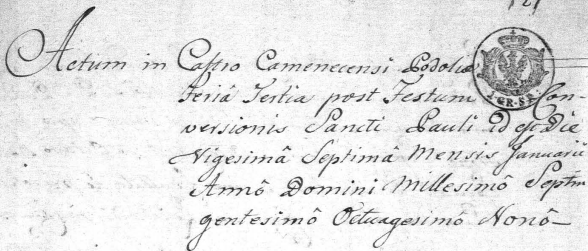 121
Actum in Castro Camenecensi Podoliæ
feriâ Tertia post Festum Con-
versionis Sancti Pauli id est Die
Vigesimâ Septimâ Mensis Januarii
Annô Domini Millesimô Septin
gentesimô Octuagesimô Nonô
GR·S